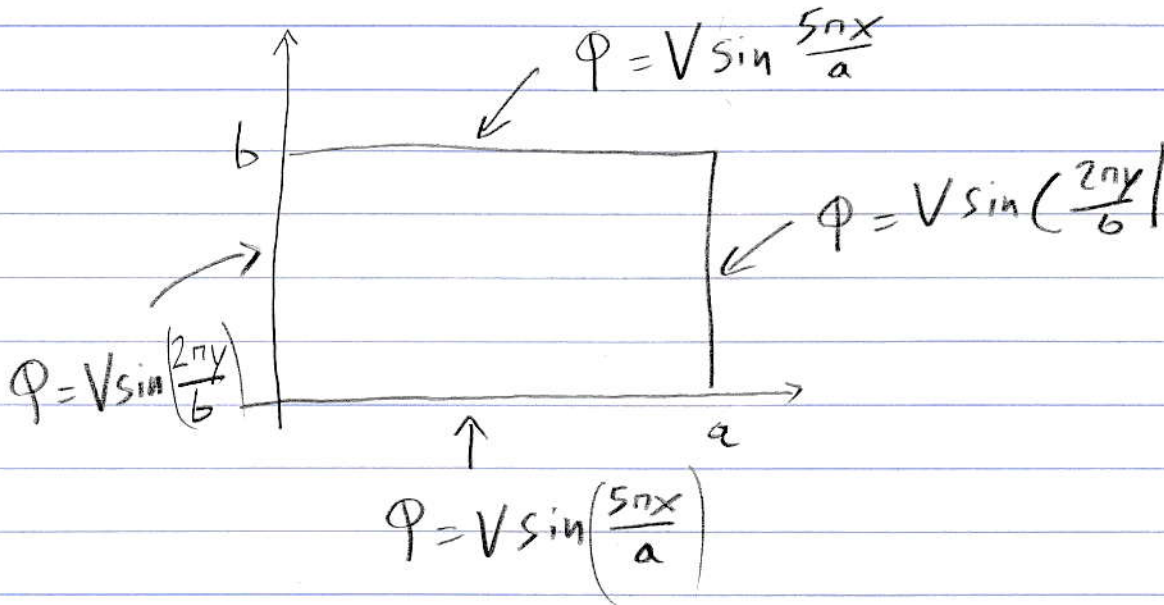 φ = V sin 5πx/a
b
φ = V sin (2πy/b)
φ = V sin(2πy/b)
a
φ = V sin(5πx/a)